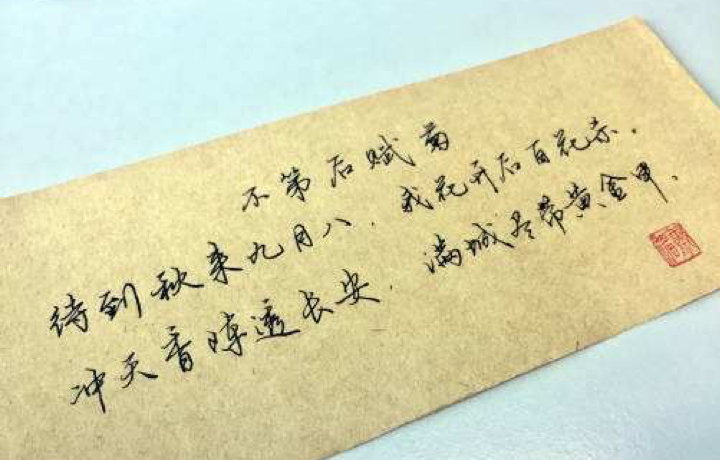 不第后赋菊
待到秋来九月八，我花开后百花杀.
冲天香阵透长安，满城尽带黄金甲.